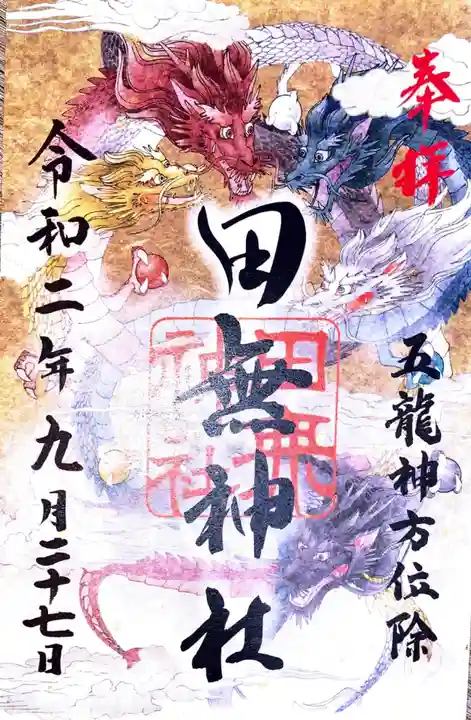 奉拝
五龍神方位除
田無神社
田無神社
令和二年九月二十七日